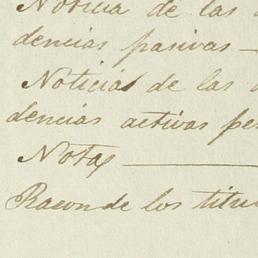 Noticia de las
dencias pasivas —
Noticias de las
dencias activas pe
Notas
Racon de los titu